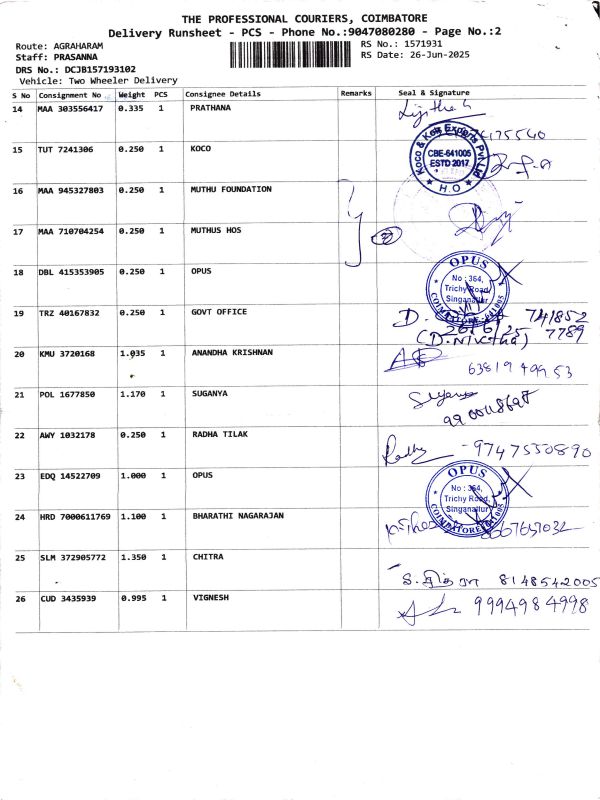 THE PROFESSIONAL COURIERS, COIMBATORE
Delivery Runsheet - PCS - Phone No.:9047080280 - Page No.:2
Route: AGRAHARAM
RS No.: 1571931
Staff: PRASANNA
RS Date: 26-Jun-2025
DRS No.: DCJB157193102
Vehicle: Two Wheeler Delivery
S No Consignment No Weight PCS Consignee Details Remarks Seal & Signature
14 MAA 303556417 0.335 1 PRATHANA
15 TUT 7241306 0.250 1 KOCO
Koco & Koco Exports Pvt Ltd
CBE-641005
ESTD 2017
H.O
16 MAA 945327803 0.250 1 MUTHU FOUNDATION
17 MAA 710704254 0.250 1 MUTHUS HOS
18 DBL 415353905 0.250 1 OPUS
OPUS
No : 364,
Trichy Road,
Singanallur
COIMBATORE-641005
19 TRZ 40167832 0.250 1 GOVT OFFICE D. 741852
26/6/25 7789
(D.Nivetha)
20 KMU 3720168 1.035 1 ANANDHA KRISHNAN
63819 49953
21 POL 1677850 1.170 1 SUGANYA Suganya
22 AWY 1032178 0.250 1 RADHA TILAK
Radha - 9747550890
23 EDQ 14522709 1.000 1 OPUS
OPUS
No : 364,
Trichy Road,
Singanallur
COIMBATORE-641005
24 HRD 7000611769 1.100 1 BHARATHI NAGARAJAN
25 SLM 372905772 1.350 1 CHITRA
சி.சித்ரா 8148542005
26 CUD 3435939 0.995 1 VIGNESH 9994984998